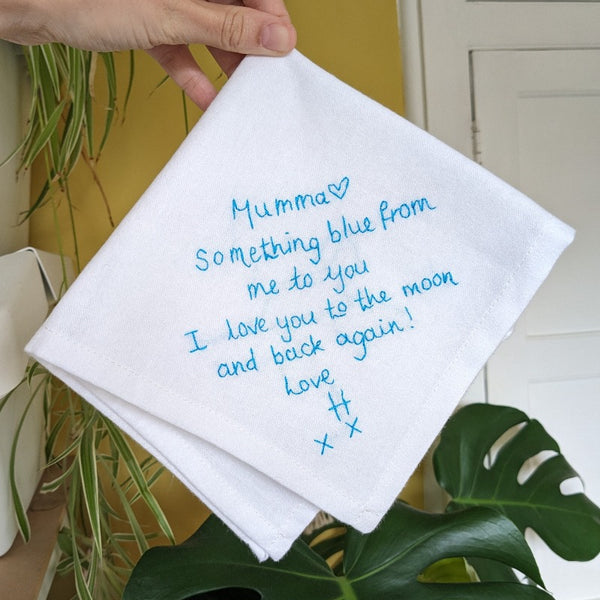 Mumma♡
Something blue from
me to you
I love you to the moon
and back again!
Love
H
x x